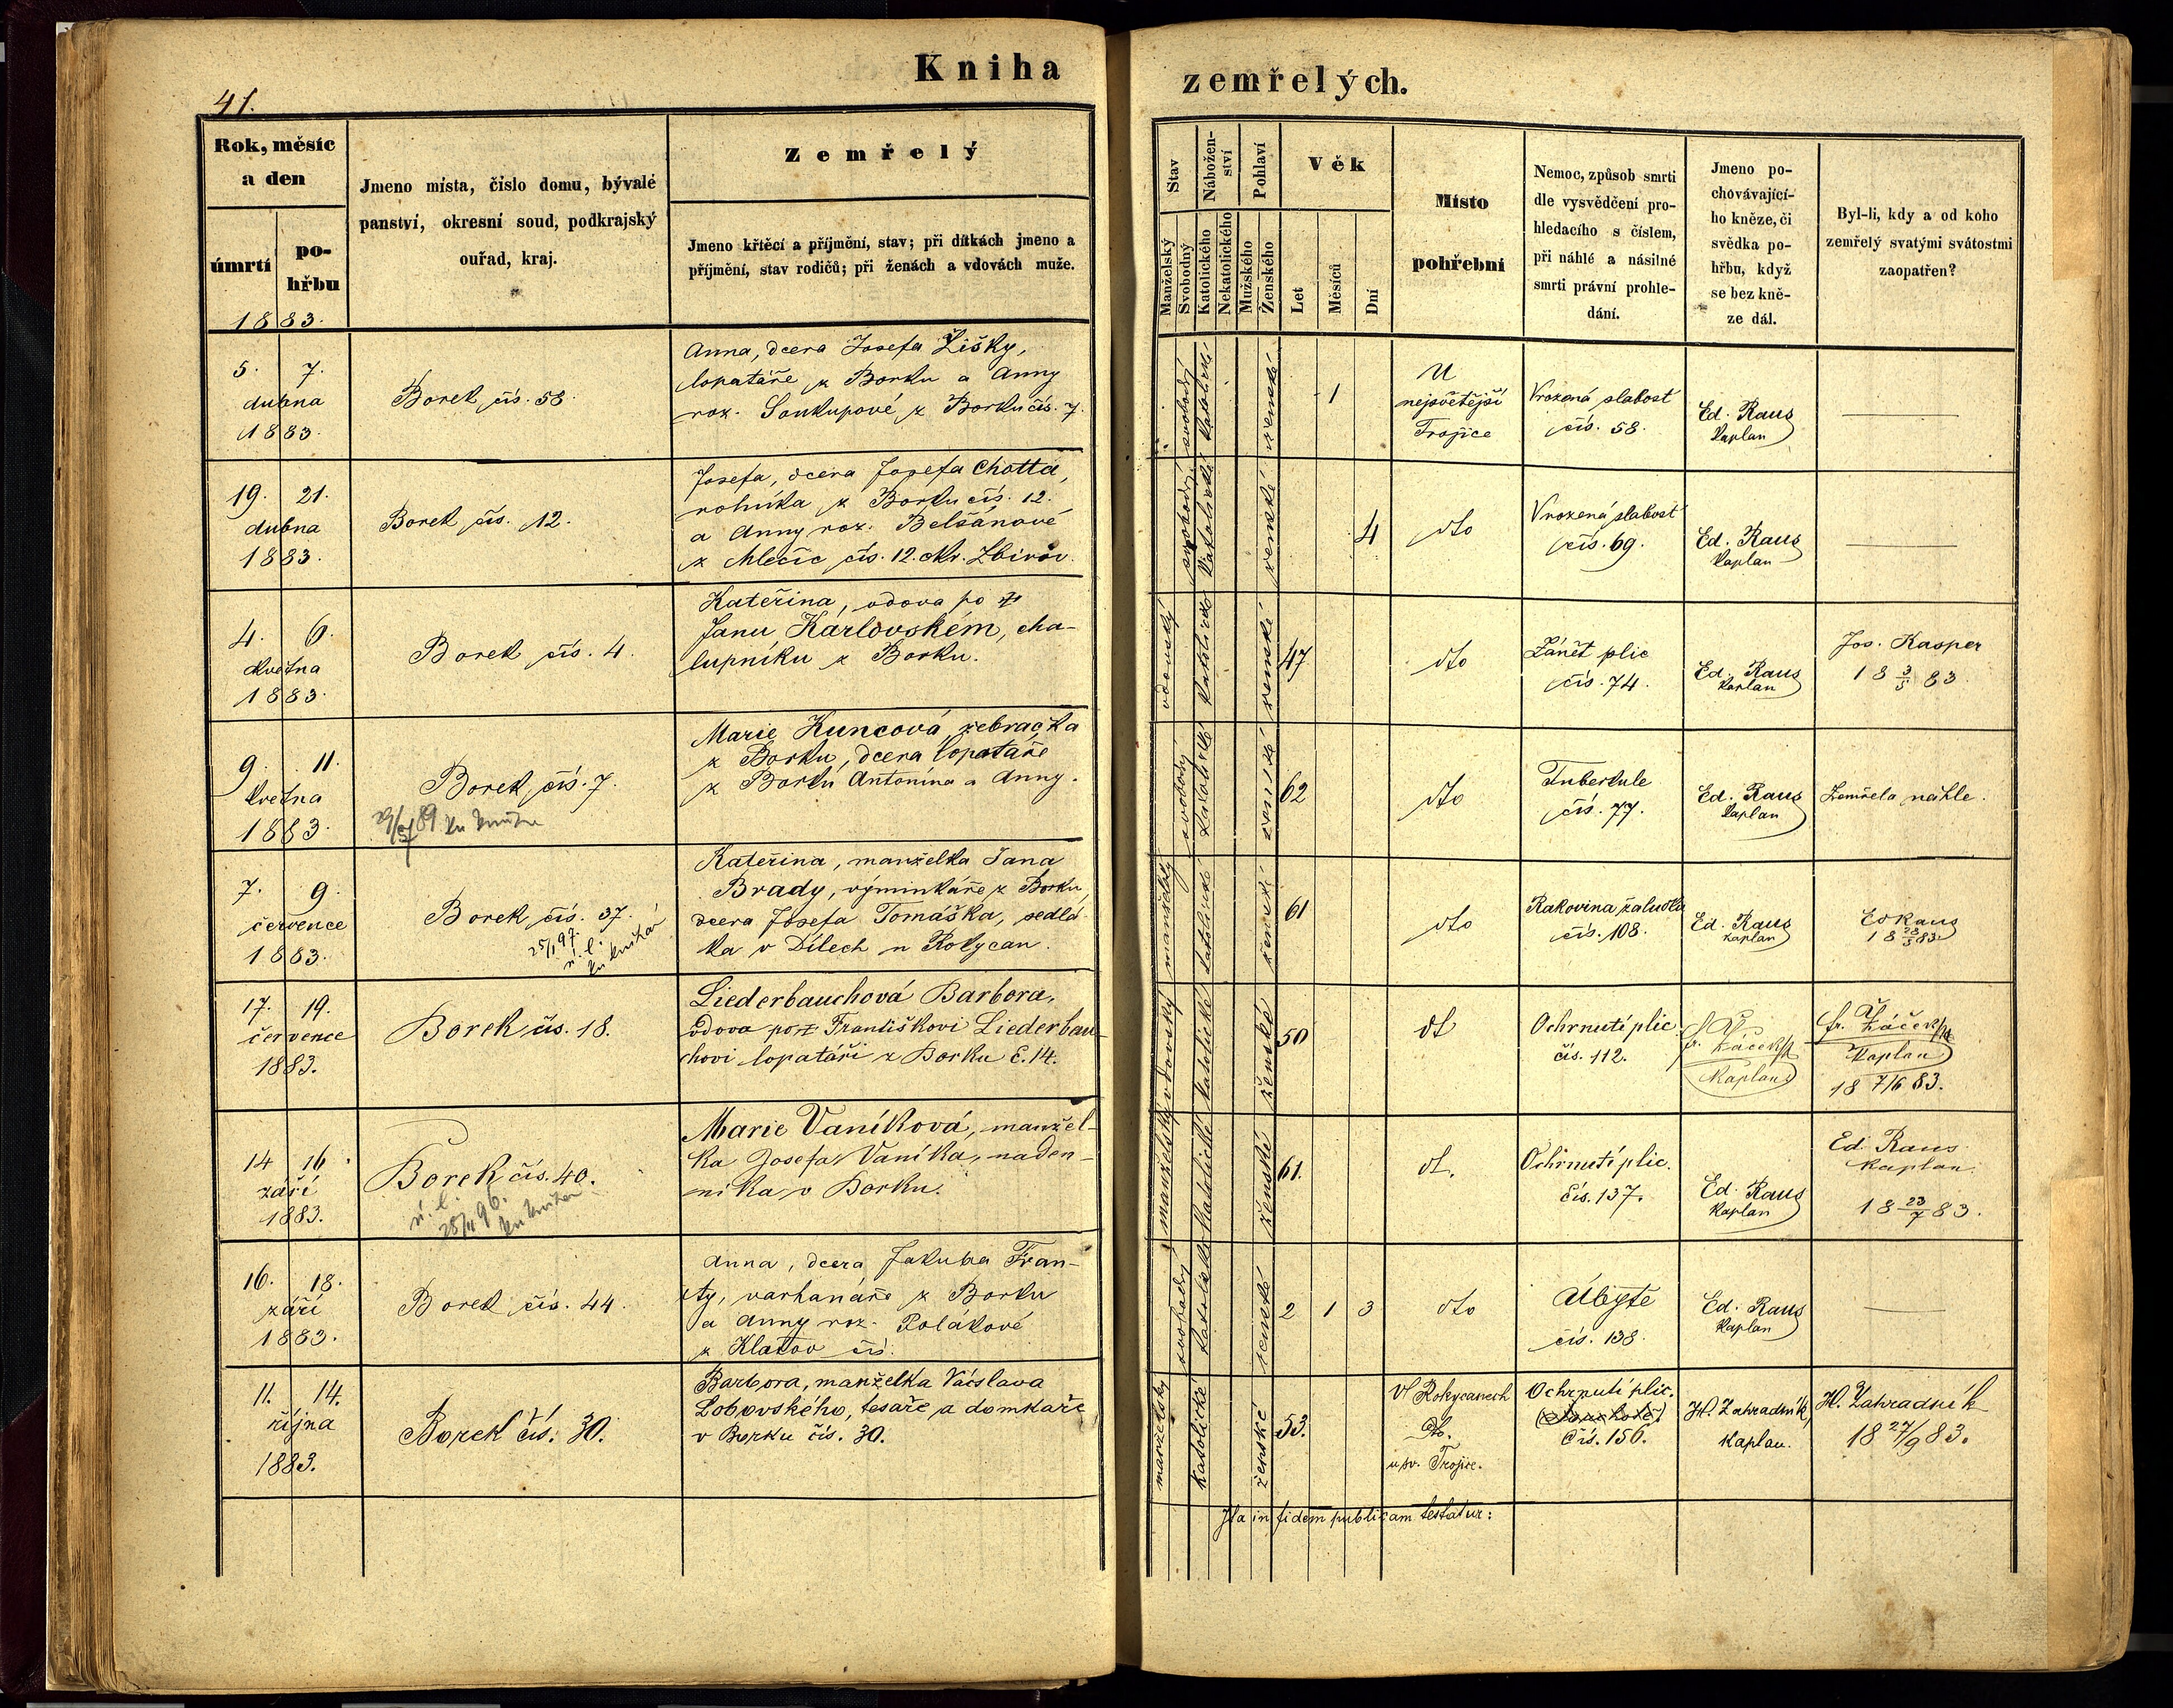 Kniha
zemřelých.
41.
Rok, měsíc
a den
úmrtí
po-
hřbu
1883.
Jmeno mista, čislo domu, bývalé
panství, okresní soud, podkrajský
ouřad, kraj.
Zemřelý
Jmeno křtěcí a příjmění, stav; při dítkách jmeno a
příjmění, stav rodičů; při ženách a vdovách muže.
Stav
Manželský
Svobodný
Nábožen-
ství
Katolického
Nekatolického
Pohlaví
Mužského
Ženského
Věk
Let
Měsíců
Dní
Místo
pohřební
Nemoc, způsob smrti
dle vysvědčení pro-
hledacího s číslem,
při náhlé a násilné
smrti právní prohle-
dání.
Jmeno po-
chovávající-
ho kněze, či
svědka po-
hřbu, když
se bez kně-
ze dál.
Byl-li, kdy a od koho
zemřelý svatými svátostmi
zaopatřen?
5. 7.
dubna
1883.
Borek čís. 58.
Anna, dcera Josefa Žišky,
lopatáře z Borku a Anny
roz. Soukupové z Borku čís. 7.
svobodný
katolické
ženské
1
U
nejsvětější
Trojice
Vrozená slabost
čís. 58.
Ed. Raus
kaplan
19. 21.
dubna
1883.
Borek čís. 12.
Josefa, dcera Josefa Chotta,
rolníka z Borku čís. 12.
a Anny roz. Belšánové
z Mlečic čís. 12. okr. Zbirov.
svobodný
katolické
ženské
4
dto
Vrozená slabost
čís. 69.
Ed. Raus
kaplan
4. 6.
května
1883.
Borek čís. 4.
Kateřina, vdova po
Janu Karlovském, cha-
lupníku z Borku.
vdovský
katolické
ženské
47
dto
Zánět plic
čís. 74.
Ed. Raus
kaplan
Jos. Kasper
18 3/5 83.
9. 11.
května
1883.
Borek čís. 7.
Marie Kuncová, žebračka
z Borku, dcera lopatáře
z Borku Antonína a Anny.
svobodný
katolické
ženské
62
dto
Tuberkule
čís. 77.
Ed. Raus
kaplan
Zemřela náhle.
7. 9.
července
1883.
Borek čís. 37.
25/1 97.
Kateřina, manželka Jana
Brady, výminkáře z Borku,
dcera Josefa Tomáška, sedlá-
ka v Dílech u Rokycan.
manželský
katolické
ženské
61
dto
Rakovina žaludku
čís. 108.
Ed. Raus
kaplan
Ed Raus
17. 19.
července
1883.
Borek čís. 18.
Liederbauchová Barbora,
vdova po Františkovi Liederbau-
chovi lopatáři z Borku č. 14.
vdovský
katolické
ženské
50
dt
Ochrnutí plic
čís. 112.
fr. Žáček
Kaplan
fr. Žáček
Kaplan
18 7/6 83.
14 16.
září
1883.
Borek čís. 40.
Marie Vaníková, manžel-
ka Josefa Vaníka, naden-
níka v Borku.
manželský
katolické
ženské
61.
dt.
Ochrnutí plic.
čís. 137.
Ed. Raus
kaplan
Ed. Raus
kaplan.
18 23/7 83.
16. 18.
září
1883.
Borek čís. 44.
Anna, dcera Jakuba Fran-
ty, varhanáře z Borku
a Anny roz. Polákové
z Klatov čís.
svobodný
katolické
ženské
2 1 3
dto
Úbytě
čís. 138.
Ed. Raus
kaplan
11. 14.
října
1883.
Borek čís. 30.
Barbora, manželka Václava
Lobovského, tesaře a domkáře
v Borku čís. 30.
manželský
katolické
ženské
53.
V Rokycanech
u sv. Trojice.
Ochrnutí plic.
čís. 156.
H. Zahradník,
kaplan.
H. Zahradník
18 27/9 83.
Ita in fidem publicam testatur: